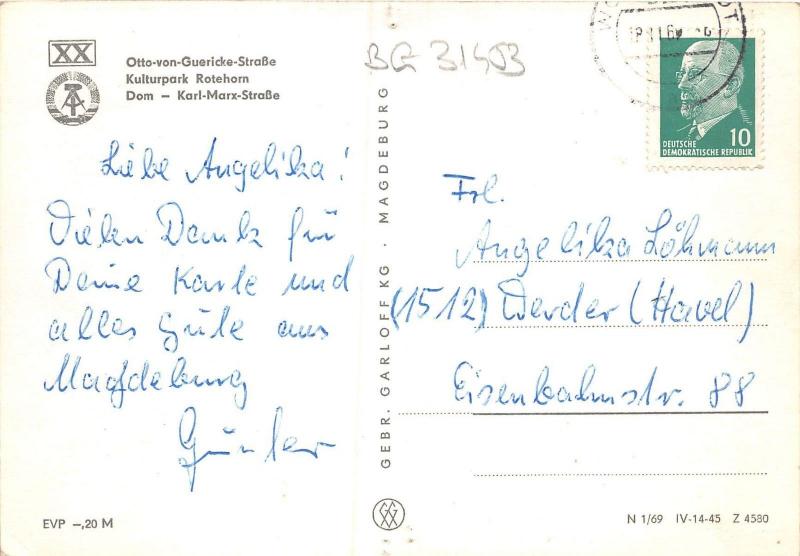 XX
Otto-von-Guericke-Straße
Kulturpark Rotehorn
Dom – Karl-Marx-Straße
BG 31403
Liebe Angelika!
Vielen Dank für
Deine Karte und
alles Gute aus
Magdeburg
Günter
EVP –,20 M
GEBR. GARLOFF KG · MAGDEBURG
10
DEUTSCHE
DEMOKRATISCHE REPUBLIK
Frl.
Angelika Löhmann
(1512) Werder (Havel)
Eisenbahnstr. 88
N 1/69 IV-14-45 Z 4580